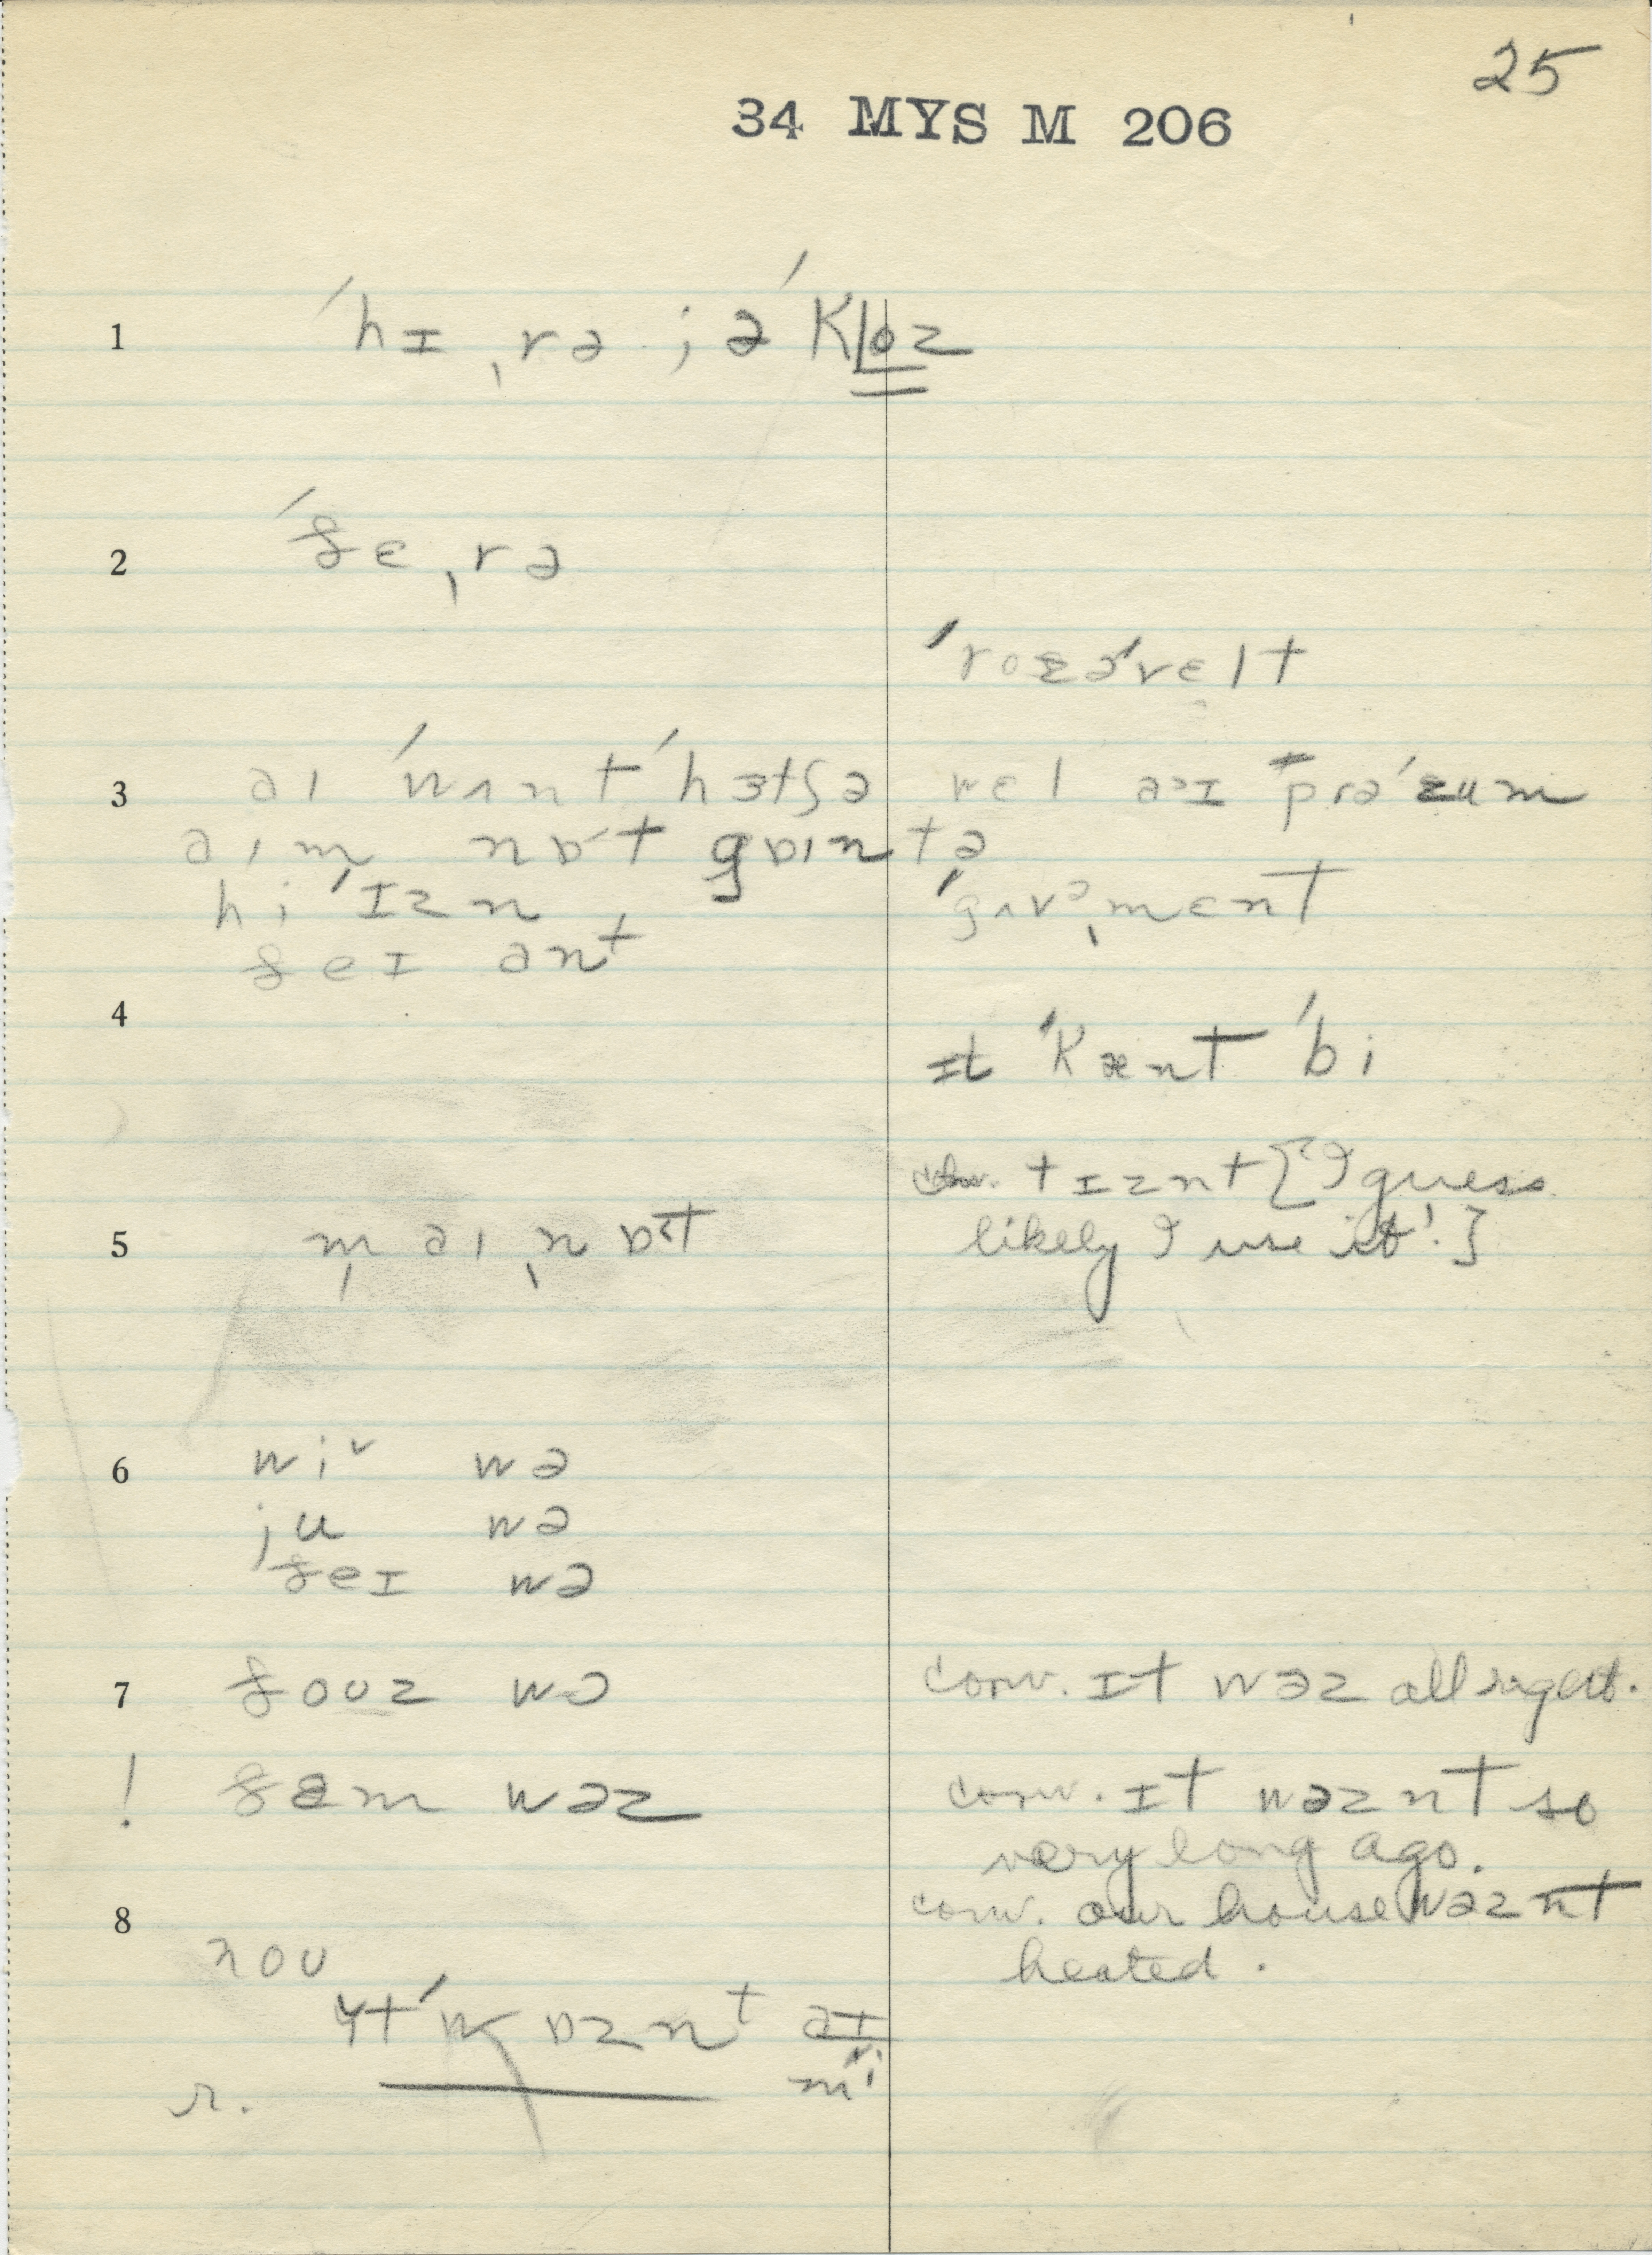 25
34 MYS M 206
1 ˈhɪˌrə jə ˈkloz
2 ˈðɛˌrə
ˈrozəˈvɛlt
3 aɪ ˈwʌnt ˈhɜtʃə
wɛl əɪ prəˈzum
aɪm nɒt gɒɪntə
hi ˈɪzn
ˈgʌvəˌmɛnt
ðeɪ ant
4
ɪt ˈkænt ˈbi
conv. tɪznt [“I guess
likely I use it”.]
5 m̩ aɪ ˌnɒt
6 wi˅ wə
ju wə
ðeɪ wə
7 ðoʊz wə
conv. ɪt wəz all right.
! ðəm wəz
conv. ɪt wəznt so
very long ago.
8
conv. our house wəznt
heated.
noʊ
ɪt ˈwɒznt aɪ
mi
r.